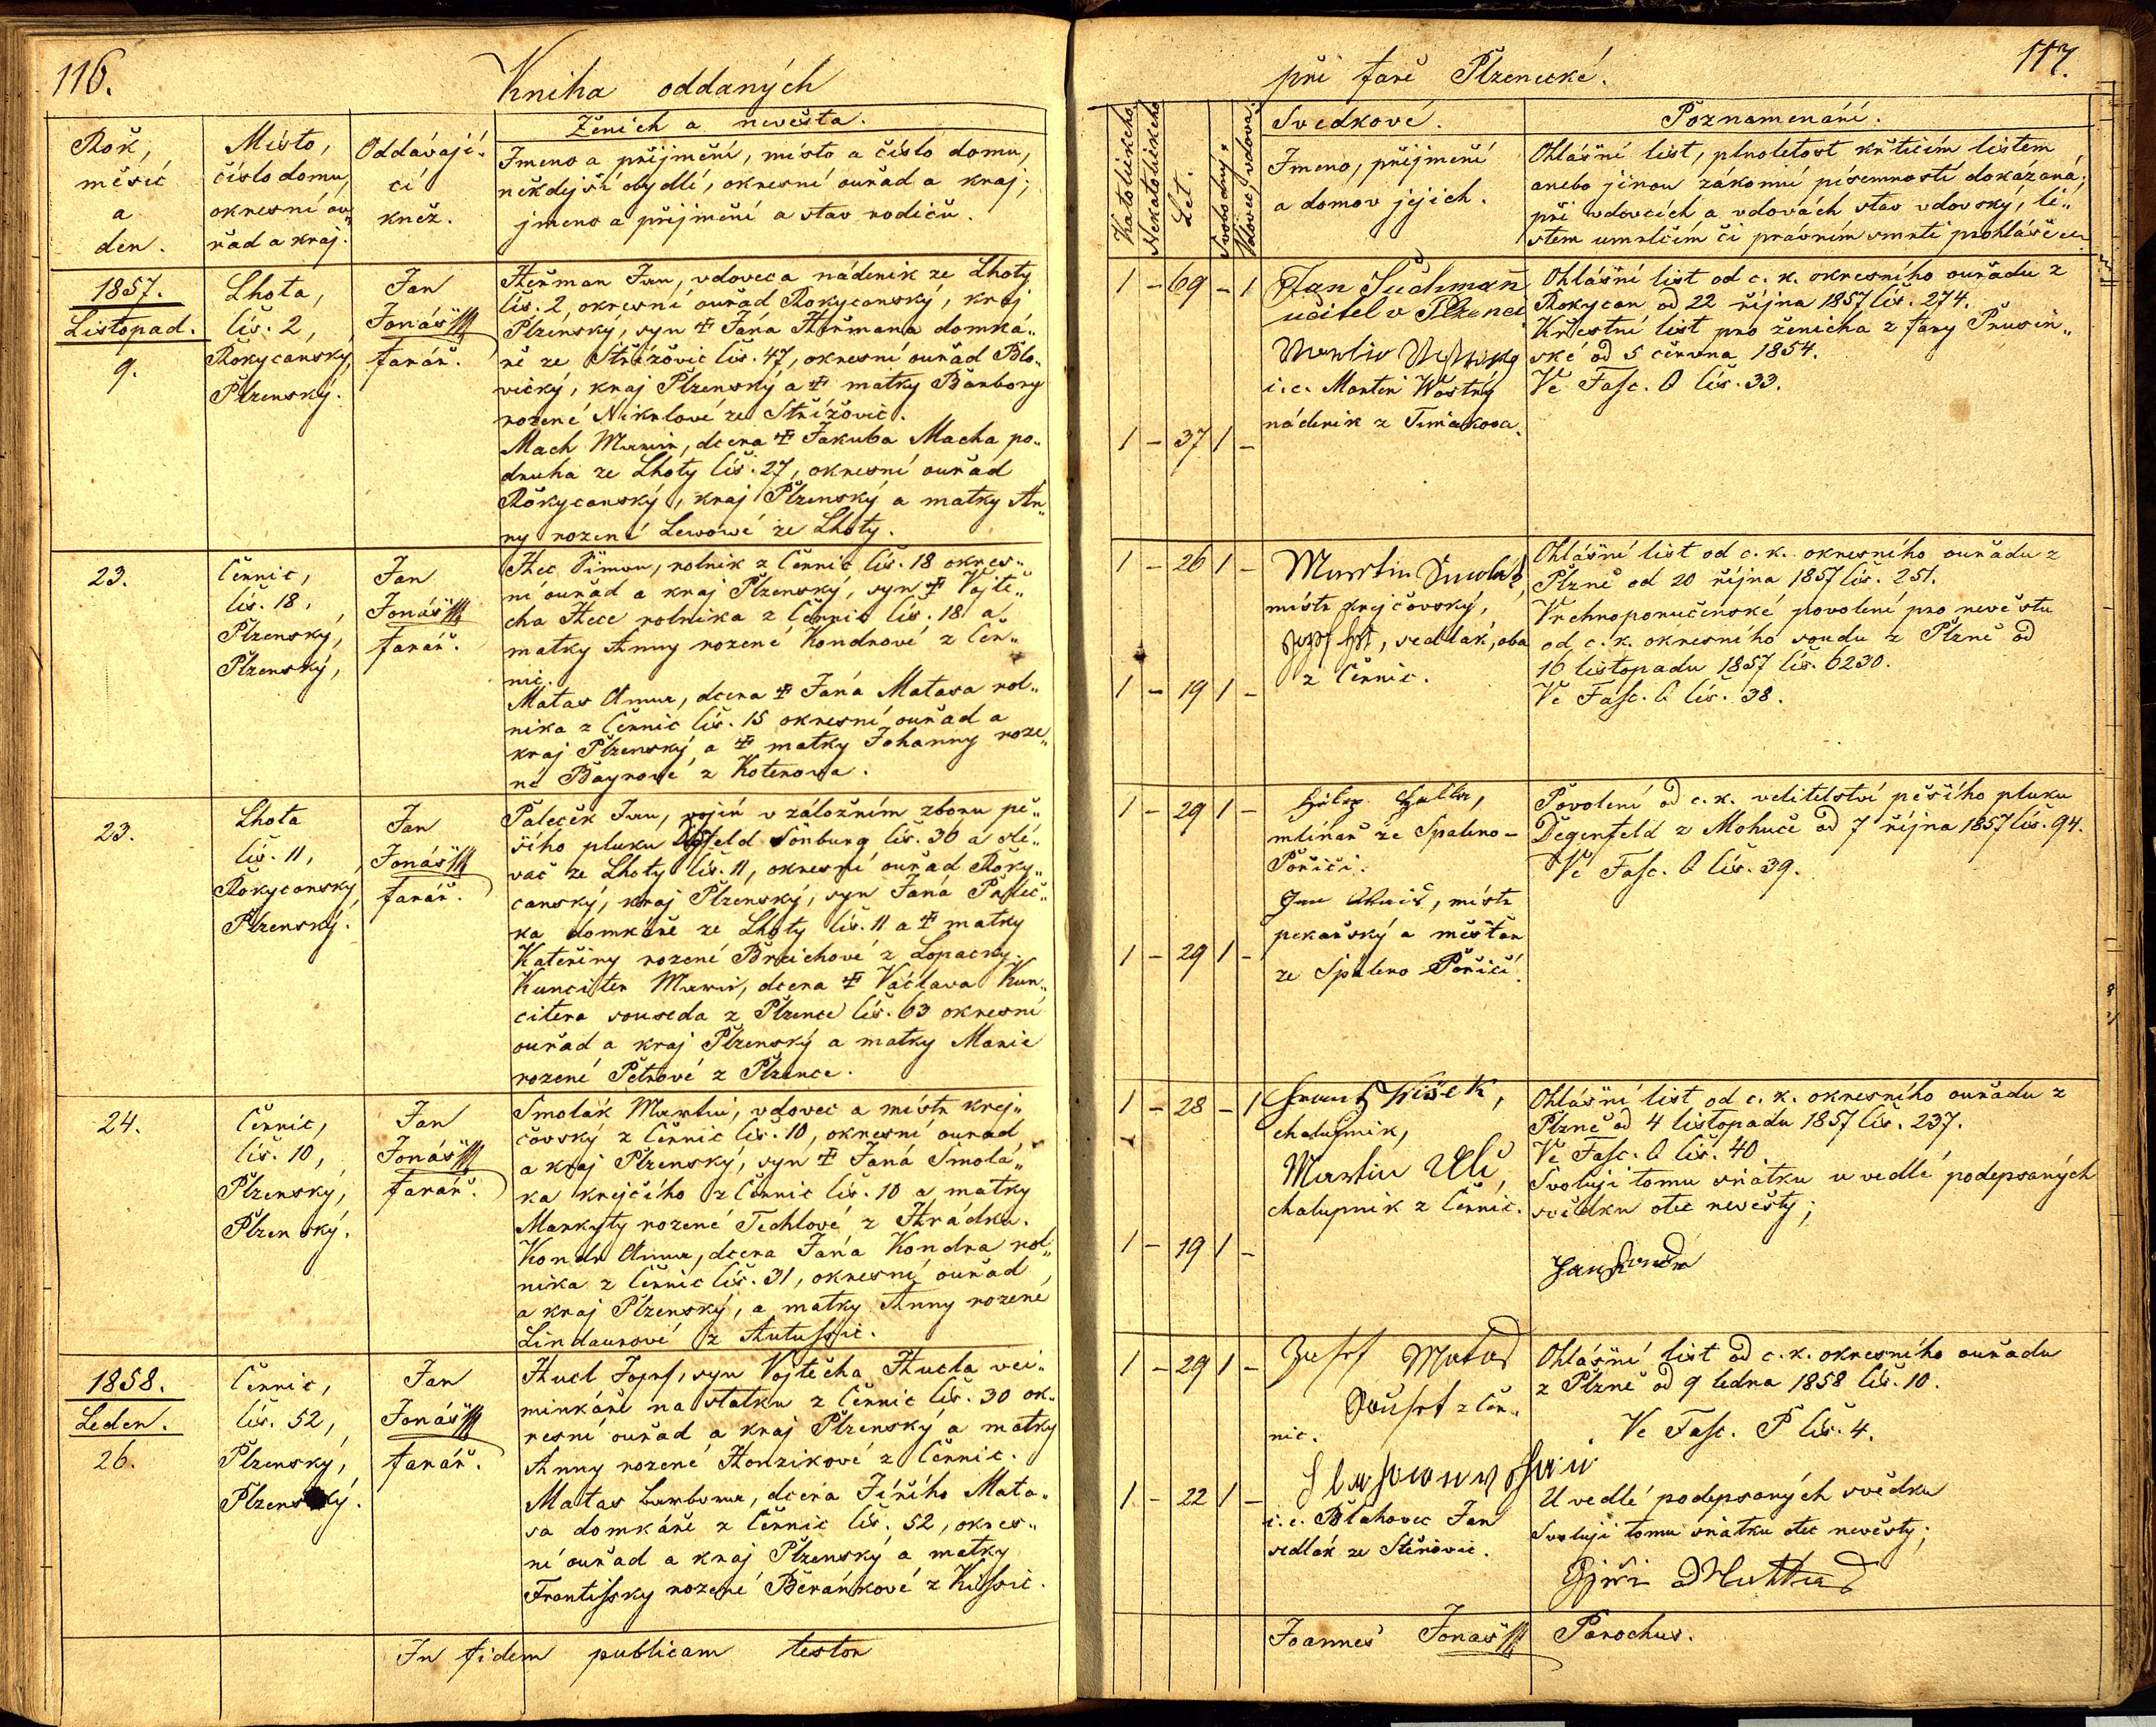 116.
Kniha oddaných
Rok,
měsíc
a
den.
Místo,
číslo domu,
okresní ou„
řad a kraj.
Oddávají„
cí
kněz.
Ženich a nevěsta.
Jmeno a příjmění, místo a číslo domu,
někdejší obydlí, okresní ouřad a kraj;
jmeno a příjmění a stav rodičů.
1857.
Listopad.
9.
Lhota,
čís. 2,
Rokycanský,
Plzenský.
Jan
Jonáš
farář.
Heřman Jan, vdovec a nádeník ze Lhoty
čís. 2, okresní ouřad Rokycanský, kraj
Plzenský, syn Jana Heřmana domká„
ře ze Střížovic čís. 47, okresní ouřad Blo„
vický, kraj Plzenský a matky Barbory
rozené Nikrlové ze Střížovic.
Mach Marie, dcera Jakuba Macha po„
druha ze Lhoty čís. 27, okresní ouřad
Rokycanský, kraj Plzenský a matky An„
ny rozené Lewowé ze Lhoty.
23.
Černic,
čís. 18,
Plzenský,
Plzenský,
Jan
Jonáš
farář.
Hec Šimon, rolník z Černic čís. 18 okres„
ní ouřad a kraj Plzenský, syn Vojtě„
cha Hece rolníka z Černic čís. 18 a
matky Anny rozené Kondrové z Čer„
nic.
Matas Anna, dcera Jana Matasa rol„
níka z Černic čís. 15 okresní ouřad a
kraj Plzenský a matky Johanny roze„
né Bayrové z Koterowa.
23.
Lhota
čís. 11,
Rokycanský
Plzenský.
Jan
Jonáš
farář.
Paleček Jan, vojín v záložním zboru pě„
šího pluku Šönburg čís. 30 a slé„
vač ze Lhoty čís. 11, okresní ouřad Roky„
canský, kraj Plzenský, syn Jana Paleč„
ka domkáře ze Lhoty čís. 11 a matky
Kateřiny rozené Breichové z Lopaczky.
Kunciter Marie, dcera Václava Kun„
citera souseda z Plzence čís. 63 okresní
ouřad a kraj Plzenský a matky Marie
rozené Petrové z Plzence.
24.
Černic,
čís. 10,
Plzenský,
Plzenský.
Jan
Jonáš
farář.
Smolák Martin, vdovec a místr krej„
čovský z Černic čís. 10, okresní ouřad
a kraj Plzenský, syn Jana Smolá„
ka krejčího z Černic čís. 10 a matky
Markyty rozené Tichlové z Hrádku.
Kondr Anna, dcera Jana Kondra rol„
níka z Černic čís. 31, okresní ouřad
a kraj Plzenský, a matky Anny rozené
Lindaurové z Autušic.
1858.
Leden.
26.
Černic,
čís. 52,
Plzenský,
Plzenský.
Jan
Jonáš
farář.
Hucl Josef, syn Vojtěcha Hucla vej„
minkáře na statku z Černic čís. 30 ok„
resní ouřad a kraj Plzenský a matky
Anny rozené Honzikové z Černic.
Matas Barbora, dcera Jiřího Mata„
sa domkáře z Černic čís. 52, okres„
ní ouřad a kraj Plzenský a matky
Frantissky rozené Beránkové z Kissic.
In fidem publicam testor
117.
při faře Plzenecké.
Katolického.
Nekatolického.
Let.
Svobodný.
Vdovec, vdova.
Svědkové.
Jmeno, příjmení
a domov jejich.
Poznamenání.
Ohlášní list, plnoletost křticím listem
anebo jinou zákonní písemností dokázaná;
při vdovcích a vdovách stav vdovský, li„
stem umrlčím či právním smrti prohlášením
1 – 69 – 1
Jan Suchman
učitel v Plzenci
i. e. Martin Wostrý
nádeník z Timákova.
Ohlášní list od c. k. okresního ouřadu z
Rokycan od 22 října 1857 čís. 274.
Křestní list pro ženicha z fary Prusin„
ské od 5 června 1854.
Ve Fasc. O čís. 33.
1 – 37 1 –
1 – 26 1 –
Martin Smolák,
místr krejčovský,
sedlák, oba
z Černic.
Ohlášní list od c. k. okresního ouřadu z
Plzně od 20 října 1857 čís. 251.
Vrchnoporučenské povolení pro nevěstu
od c. k. okresního soudu z Plzně od
16 listopadu 1857 čís. 6230.
Ve Fasc. O čís. 38.
1 – 19 1 –
1 – 29 1 –
mlínař ze Spaleno –
Poříčí.
Jan, místr
pekařský a měšťan
ze Spáleno Poříčí.
Povolení od c. k. velitelství pěšího pluku
Degenfeld z Mohuče od 7 října 1857 čís. 94.
Ve Fasc. O čís. 39.
1 – 29 1 –
1 – 28 – 1
chalupník,
Martin
chalupník z Černic.
Ohlášní list od c. k. okresního ouřadu z
Plzně od 4 listopadu 1857 čís. 237.
Ve Fasc. O čís. 40.
Svoluji tomu sňatku u vedlé podepsaných
svědku otec nevěsty;
Jan Kondr
1 – 19 1 –
1 – 29 1 –
Josef Matas
z Čer„
nic.
i. e. Blahovec Jan
sedlák ze Stěnovic.
Ohlášní list od c. k. okresního ouřadu
z Plzně od 9 ledna 1858 čís. 10.
Ve Fasc. P čís. 4.
1 – 22 1 –
U vedlé podepsaných svědku
Svoluji tomu sňatku otec nevěsty;
Joannes Jonáš Parochus.